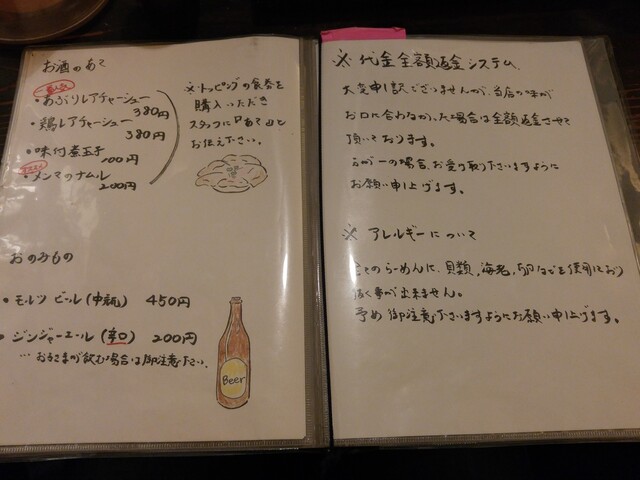 お酒のあて
・あぶりレアチャーシュー
380円
・鶏レアチャーシュー
380円
・味付煮玉子
100円
・メンマのナムル
200円
※トッピングの食券を
購入いただき
スタッフに「あて」と
お伝え下さい。
おのみもの
・モルツ ビール(中瓶) 450円
・ジンジャーエール(辛口) 200円
…お子さまが飲む場合は御注意ください。
Beer
※ 代金全額返金システム
大変申し訳ございませんが、当店の味が
お口に合わなかった場合は全額返金させて
頂いております。
万が一の場合、お受け取り下さいますように
お願い申し上げます。
※ アレルギーについて
全てのらーめんに、貝類、海老、卵などを使用しており
抜く事が出来ません。
予め御注意下さいますようにお願い申し上げます。